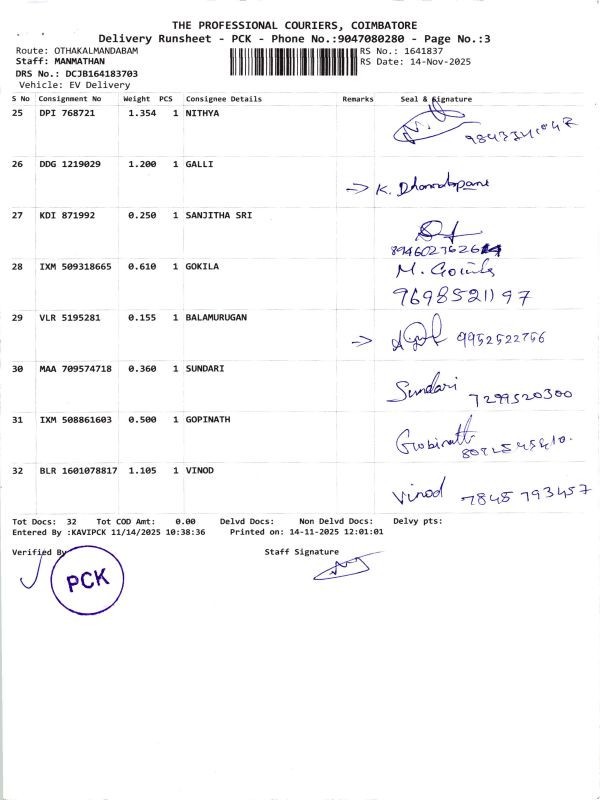 THE PROFESSIONAL COURIERS, COIMBATORE
Delivery Runsheet - PCK - Phone No.:9047080280 - Page No.:3
Route: OTHAKALMANDABAM RS No.: 1641837
Staff: MANMATHAN RS Date: 14-Nov-2025
DRS No.: DCJB164183703
Vehicle: EV Delivery
S No Consignment No Weight PCS Consignee Details Remarks Seal & Signature
25 DPI 768721 1.354 1 NITHYA
26 DDG 1219029 1.200 1 GALLI
→ K.
27 KDI 871992 0.250 1 SANJITHA SRI
28 IXM 509318665 0.610 1 GOKILA M. Gokila
9698521197
29 VLR 5195281 0.155 1 BALAMURUGAN
→ 9952522756
30 MAA 709574718 0.360 1 SUNDARI
Sundari 7299520300
31 IXM 508861603 0.500 1 GOPINATH
Gobinath
32 BLR 1601078817 1.105 1 VINOD
Vinod 7845793457
Tot Docs: 32 Tot COD Amt: 0.00 Delvd Docs: Non Delvd Docs: Delvy pts:
Entered By :KAVIPCK 11/14/2025 10:38:36 Printed on: 14-11-2025 12:01:01
Verified By Staff Signature
PCK